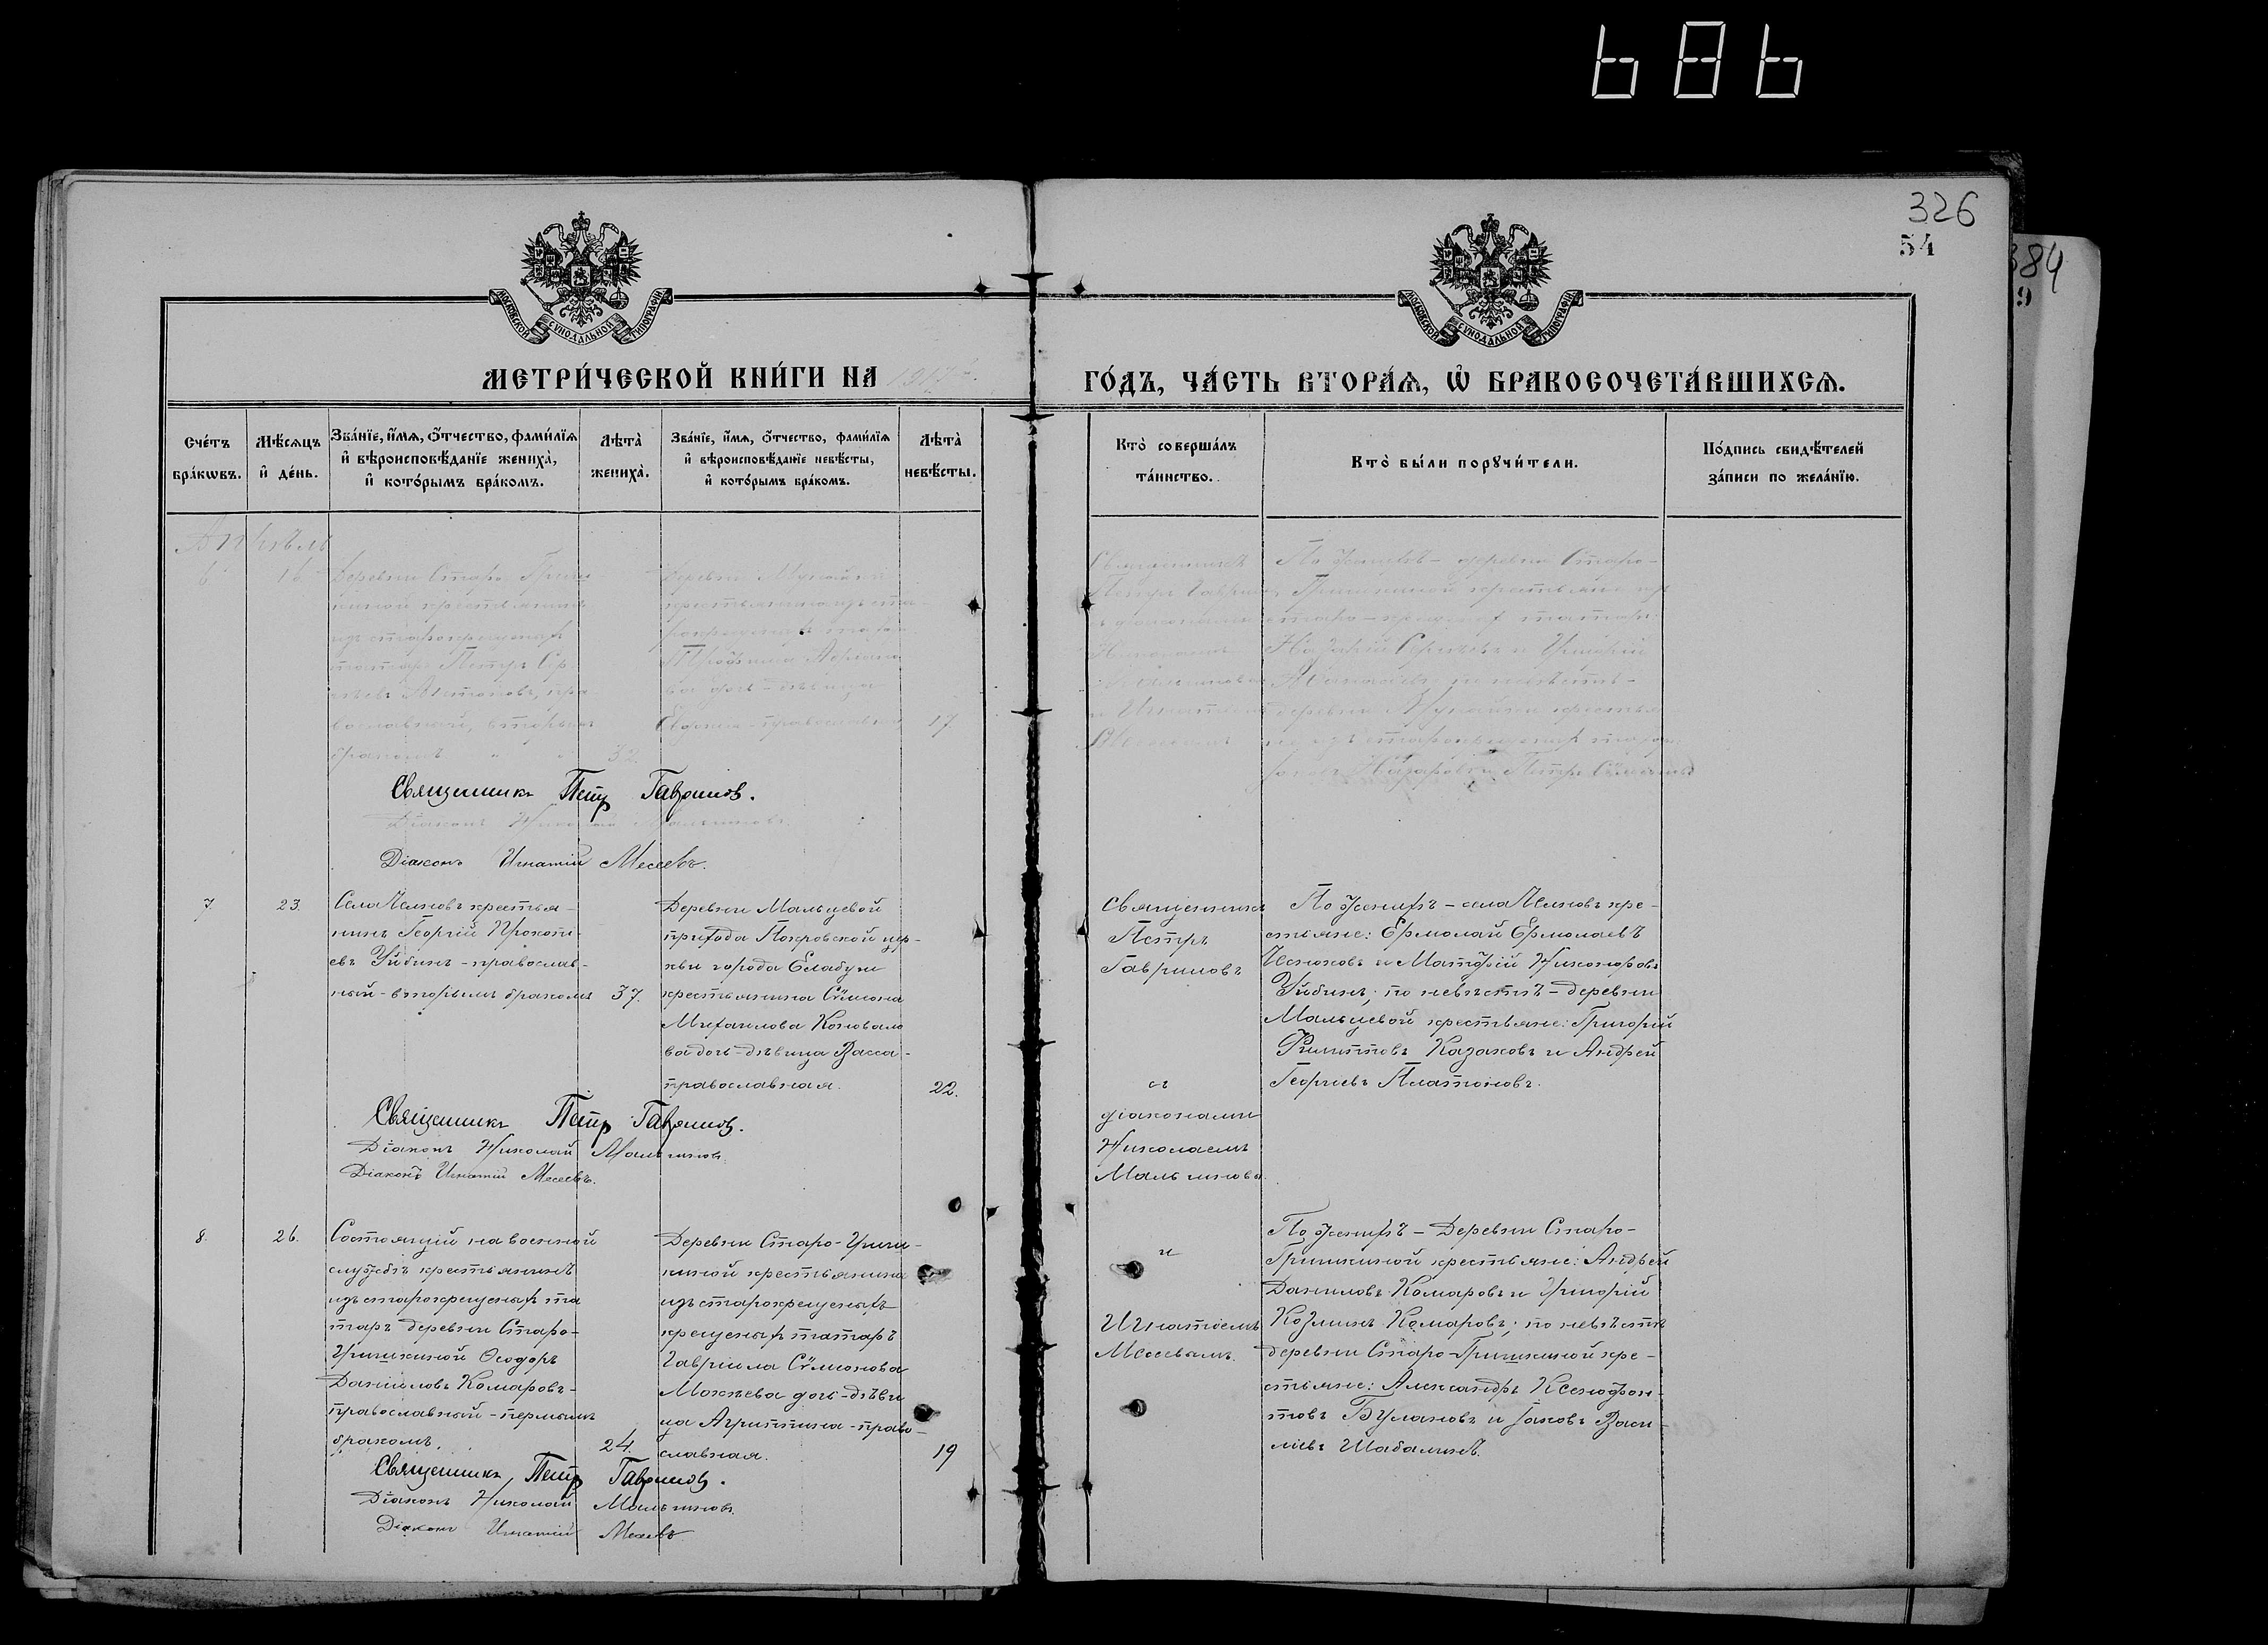 686
326
54
384
9
МОСКОВСКОЙ СѴНОДАЛЬНОЙ ТИПОГРАФІИ
МОСКОВСКОЙ СѴНОДАЛЬНОЙ ТИПОГРАФІИ
МЕТРИ́ЧЕСКОЙ КНИ́ГИ НА 1917
ГО́ДЪ, ЧА́СТЬ ВТОРА́Ѧ, Ѡ҆ БРАКОСОЧЕТА́ВШИХСѦ.
Сче́тъ бра́кѡвъ.
Мѣ́сѧцъ и҆ де́нь.
Зва́нїе, и҆́мѧ, ѻ҆́тчество, фами́лїѧ
и҆ вѣроисповѣ́данїе жениха̀,
и҆ кото́рымъ бра́комъ.
Лѣта̀ жениха̀.
Зва́нїе, и҆́мѧ, ѻ҆́тчество, фами́лїѧ
и҆ вѣроисповѣ́данїе невѣ́сты,
и҆ кото́рымъ бра́комъ.
Лѣта̀ невѣ́сты.
Кто̀ соверша́лъ
та́инство.
Кто̀ бы́ли порꙋчи́тели.
По́дпись свидѣ́телей
за́писи по жела́нїю.
Апрѣль
6
16
Деревни Старо-Гриш-
киной крестьянинъ
изъ старокрещеныхъ
татаръ Петръ Сер-
Антоновъ, пра
вославный, вторымъ
бракомъ
32.
Деревни
крестьянина изъ ста-
рокрещеныхъ татаръ
дочь-дѣвица
православная
17.
Священникъ
Петръ Гаврилов
По женихѣ – деревни Старо-
Гришкиной крестьяне изъ
старо-крещеныхъ татаръ
и Григорій
по невѣстѣ –
деревни крестья-
не изъ старокрещеныхъ татаръ
Священникъ Петр Гаврилов.
Діаконъ Николай Мальгиновъ.
Діаконъ Игнатій Мосеевъ.
7.
23.
Села Челновъ крестья-
нинъ Георгій Прокопі-
евъ Зыбинъ – православ-
ный – вторымъ бракомъ
37.
Деревни Мальцевой
прихода Покровской цер-
кви города Елабуги
крестьянина Сѵмеона
Михаилова Коновало
ва дочь-дѣвица Васса –
православная.
22.
Священникъ
Петръ
Гавриловъ
съ
діаконами
Николаемъ
Мальгиновы
По женихѣ – села Челновъ кре-
стьяне: Ермолай Ермолаевъ
Чесноковъ и Матѳій Никоноровъ
Зыбинъ; по невѣстѣ – деревни
Мальцевой крестьяне: Григорій
Филипповъ Казаковъ и Андрей
Георгіевъ Платоновъ.
Священникъ Петр Гаврилов.
Діаконъ Николай Мальгиновъ.
Діаконъ Игнатій Мосеевъ.
8.
26.
Состоящій на военной
службѣ крестьянинъ
изъ старокрещеныхъ та
таръ деревни Старо-
Гришкиной Ѳеодоръ
Даниловъ Комаровъ –
православный – первымъ
бракомъ.
24.
Деревни Старо-Гриш-
киной крестьянина
изъ старокрещеныхъ
крещеныхъ татаръ
Гавріила Сѵмеонова
Мокѣева дочь-дѣви
ца Агриппина – право-
славная.
19
и
Игнатіемъ
Мосеевымъ.
По женихѣ – Деревни Старо-
Гришкиной крестьяне: Андрей
Даниловъ Комаровъ и Григорій
Козминъ Комаровъ; по невѣстѣ
деревни Старо-Гришкиной кре-
стьяне: Александръ Ксенофон-
товъ Булановъ и Іаковъ Васи-
ліевъ Шабалинъ.
Священникъ, Петр Гаврилов.
Діаконъ Николай Мальгиновъ.
Діаконъ Игнатій Мосеевъ